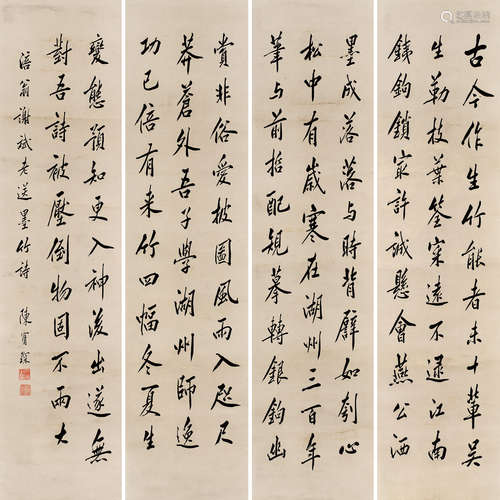 古今作生竹能者未十輩吳
生勒枝葉筌寀遠不逮江南
銕鉤鎖冣許誠懸會燕公洒
墨成落落与時背譬如刳心
松中有歲寒在湖州三百年
筆与前哲配規摹轉銀鉤幽
賞非俗愛披圖風雨入咫尺
莽蒼外吾子學湖州師逸
功已倍有来竹四幅冬夏生
變態預知更入神後出遂無
對吾詩被壓倒物固不兩大
涪翁謝斌老送墨竹詩 陳寶琛